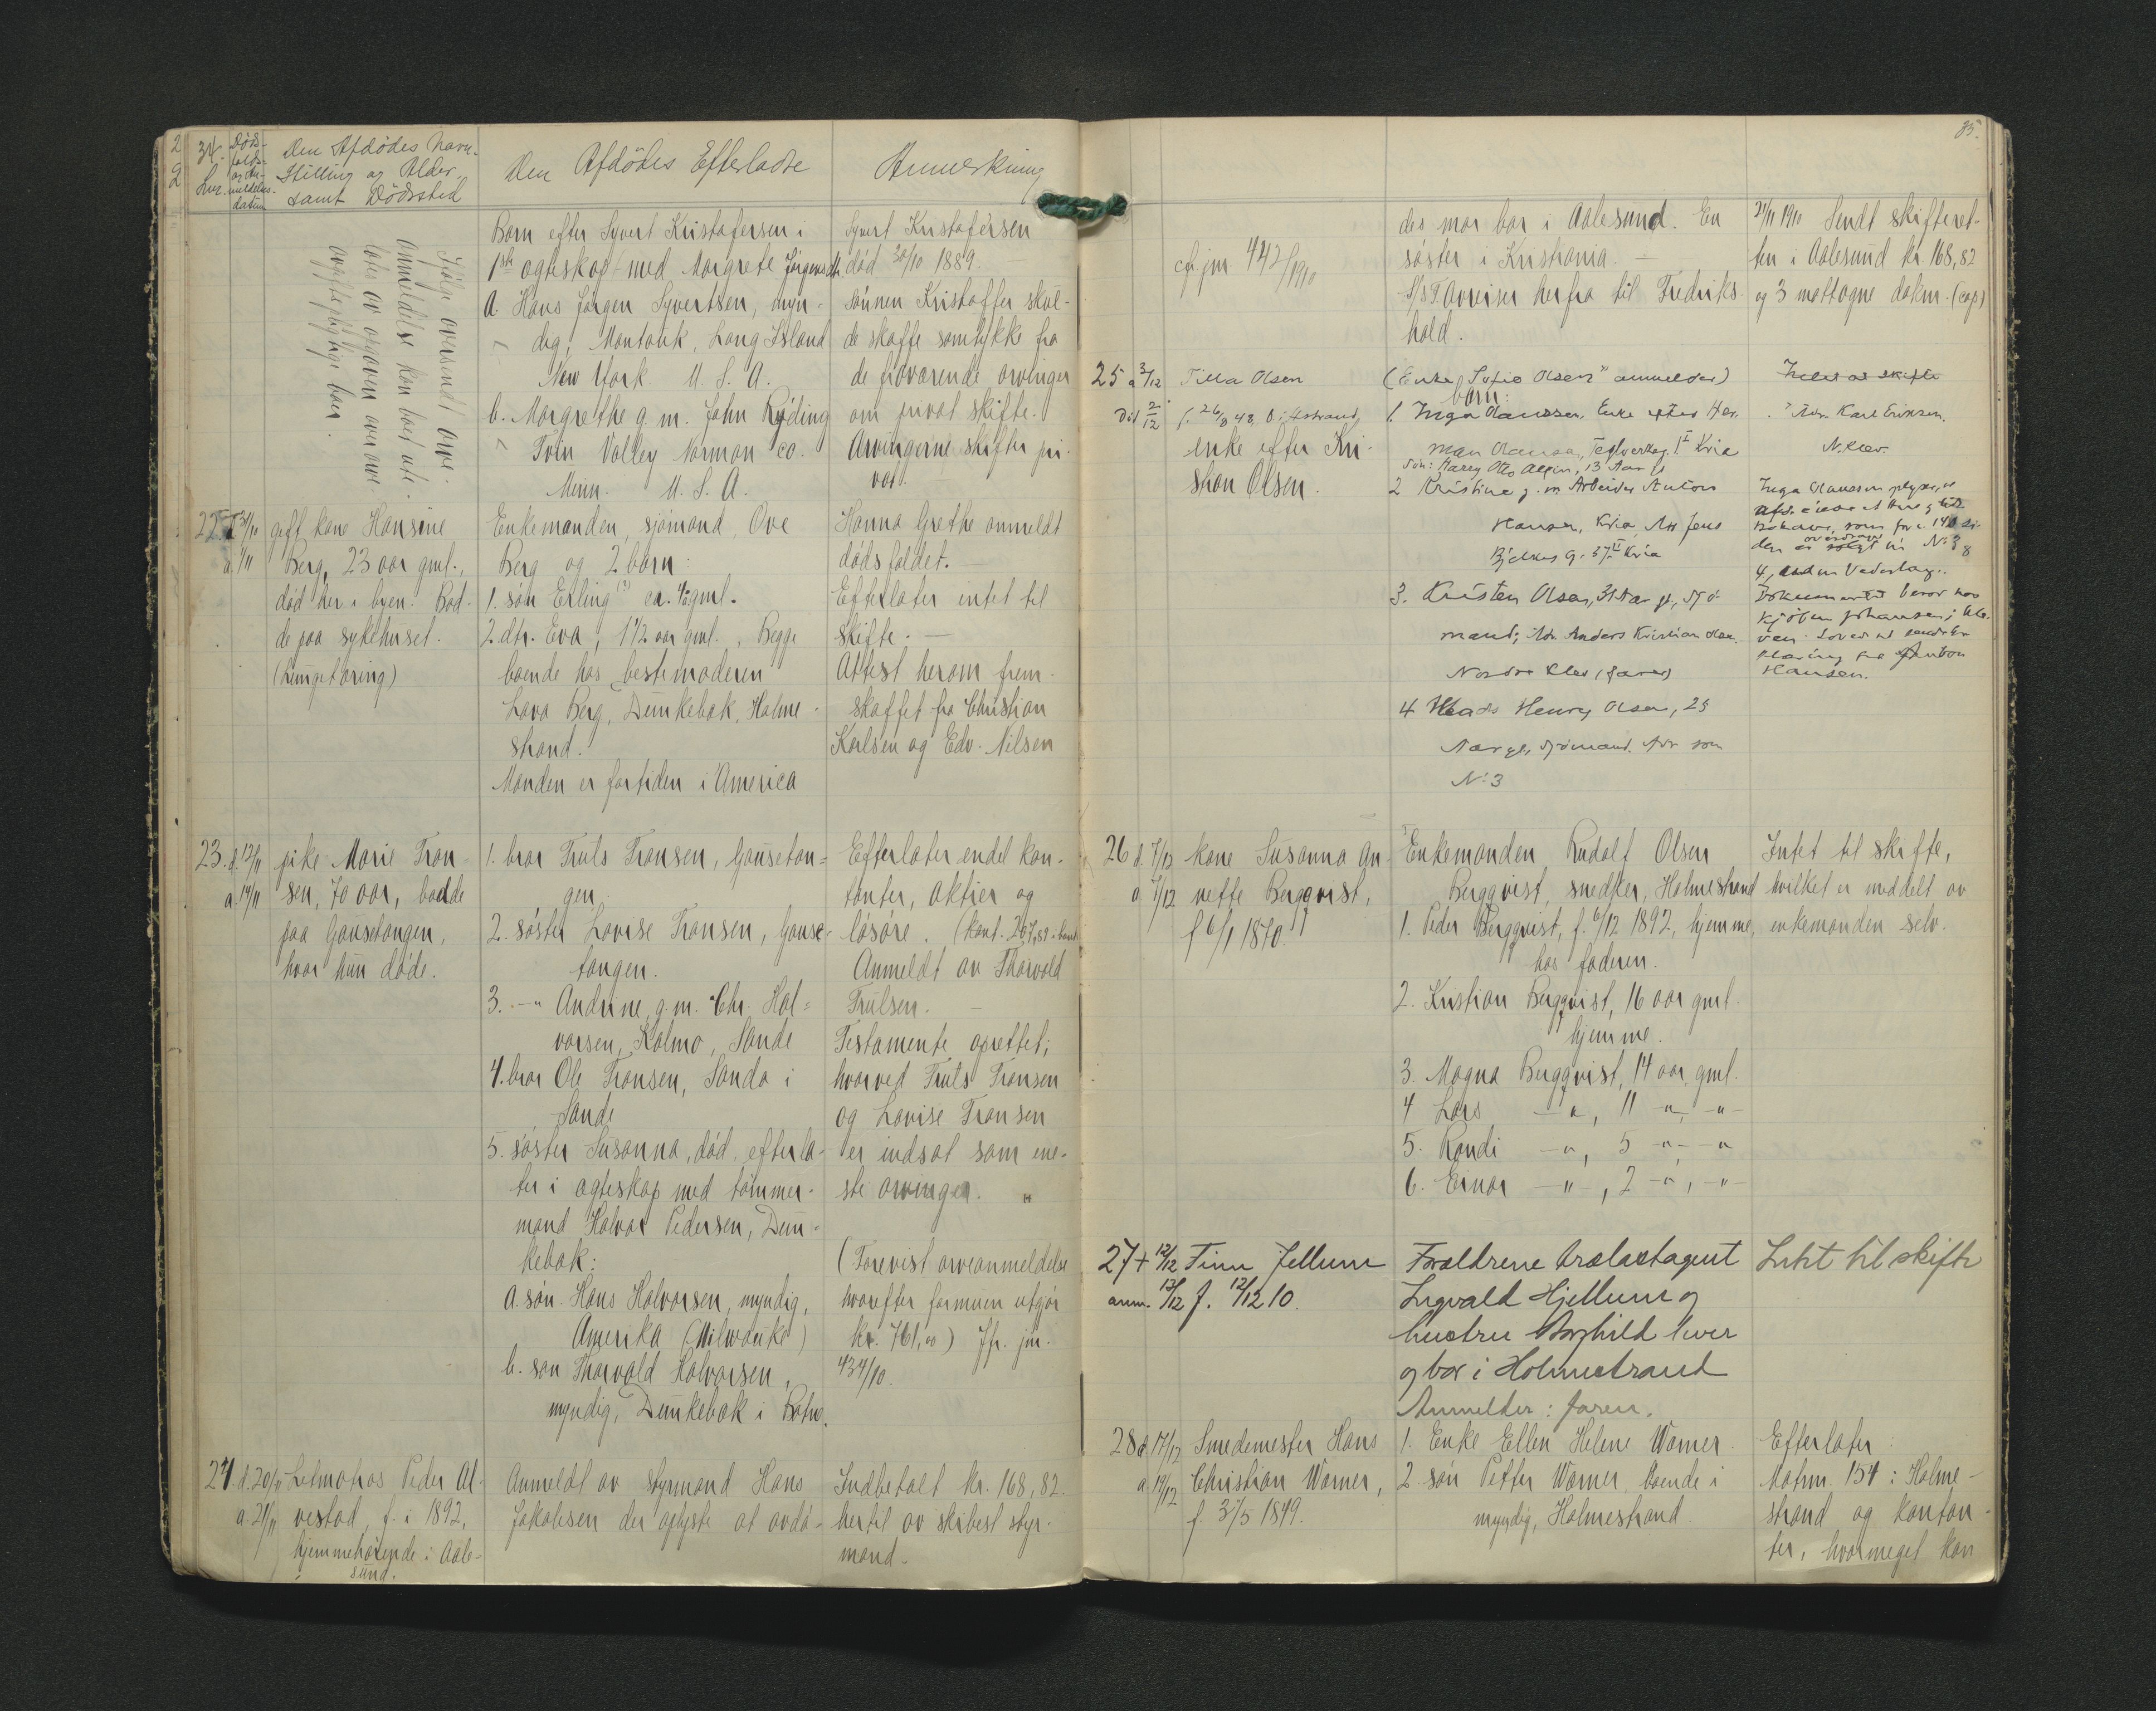 34.
Lnr.
Døds-
falds-
og An-
meldelses-
datum
Den Afdødes Navn
Stilling og Alder
samt Dødssted
Den Afdødes Efterladte
Anmerkning
Ifølge oversendt ove
anmeldelse
Børn efter Syvert Kristofersen i
1ste egteskap med Margrete Jørgensdtr
a. Hans Jørgen Syvertsen, myn-
dig, Montauk, Long Island
New York U. S. A.
b. Margrethe g. m. John Ryding
Tvin Valley Norman co.
Minn. U. S. A.
Syvert Kristofersen
død 30/10 1889.
Sønnen Kristoffer skul-
de skaffe samtykke fra
de fraværende arvinger
om privat skifte.
Arvingerne skifter pri-
vat.
22
a. 1/11
gift kone Hansine
Berg, 23 aar gml.,
død her i byen. Bod-
de paa sykehuset.
(Lungetæring)
Enkemanden, sjømand, Ove
Berg og 2 børn:
1. søn Erling ca. 4 gml.
2. dtr. Eva, 1 1/2 aar gml., Begge
boende hos bestemoderen
Lava Berg, Dunkebæk, Holme-
strand.
Manden er fortiden i America
Hanna Grethe anmeldt
dødsfaldet.
Efterlater intet til
skifte. —
Attest herom frem-
skaffet fra Christian
Karlsen og Edv. Nilsen
23. d. 12/11
a. 14/11
pike Marie Tran-
sen, 70 aar, bodde
paa Gausetangen,
hvor hun døde.
1. bror Truls Fransen, Gausetan-
gen
2. søster Lovise Fransen, Gause-
tangen.
3. —"— Andrine, g. m. Chr. Hal-
vorsen, Kolmo, Sande
4. bror Ole Fransen, Sanda i
Sande
5. søster Susanna, død, efterla-
ter i egteskap med tømmer-
mand Halvor Pedersen, Dun-
kebæk:
a. søn Hans Halvorsen, myndig,
Amerika (Milwauke)
b. søn Thorvald Halvorsen,
myndig, Dunkebæk i Botne.
Efterlater endel kon-
tanter, aktier og
løsøre.
Anmeldt av Thorvald
Trulsen. —
Testamente oprettet;
hvorved Truls Fransen
og Lovise Fransen
er indsat som ene-
ste arvinger. "
(Forevist arveanmeldelse
hvorefter formuen utgjør
kr. 761,00) Jfr. jnr.
434/10.
24. d. 20/11
a. 21/11
Letmatros Peder Al-
vestad, f. i 1892,
hjemmehørende i Aale-
sund.
Anmeldt av styrmand Hans
Jakobsen der oplyste at avdø-
Indbetalt kr. 168,82
hertil av skibest styr-
mand.
35.
cfr jnr 442/1910
des mor bor i Aalesund. En
søster i Kristiania. —
S/S T. avreiser herfra til Fredriks-
hald.
21/11 1910 Sendt skifteret-
ten i Aalesund kr. 168,82
og 3 mottagne dokm. (cop)
25 a 3/12
Død 2/12
Tilla Olsen
enke efter Kri-
stian Olsen.
(Enke Sofie Olsen anmelder)
børn:
1. Inga Hanssen, Enke efter Her-
man Hansen,
Søn: Harry Otto 13 Aar
2 Kristine g. m. Arbeider Anton
Hansen, Kria
3. Kristen Olsen, 31 Aar gl, sjø-
mand; Adr. Anders Kristian
Nordre Klev
4 Mads Henry Olsen, 25
Aar gl, sjømand. Adr som
No 3
Adr. Karl Eriksen
N. Klev.
Hansen.
26 d. 7/12
a. 7/12
kone Susanna An-
nette Bergqvist,
f 6/1 1870.
Enkemanden Rudolf Olsen
Bergqvist, snedker, Holmestrand
1. Peder Bergqvist, f. 6/12 1892, hjemme,
hos faderen.
2. Kristian Bergqvist, 16 aar gml.
hjemme.
3. Magna Bergqvist, 14 aar gml.
4 Lars —"—, 11 —"— —"—
5. Randi —"—, 5 —"— —"—
6. Einar —"—, 2 —"—, —"—
Intet til skifte,
hvilket er meddelt av
enkemanden selv.
27 + 12/12
anm. 13/12
Finn Jellum
f. 12/12 10.
Forældrene
Ingvald Hjellum og
hustru Borghild lever
og bor i Holmestrand
Anmelder: faren.
Intet til skifte
28 d. 17/12
a. 19/12
Smedemester Hans
Christian Warner,
f. 31/5 1849.
1. Enke Ellen Helene Warner.
2 søn Petter Warner, boende i
myndig, Holmestrand.
Efterlater:
Matrn. 154 i Holme-
strand og kontan-
ter, hvormeget kan